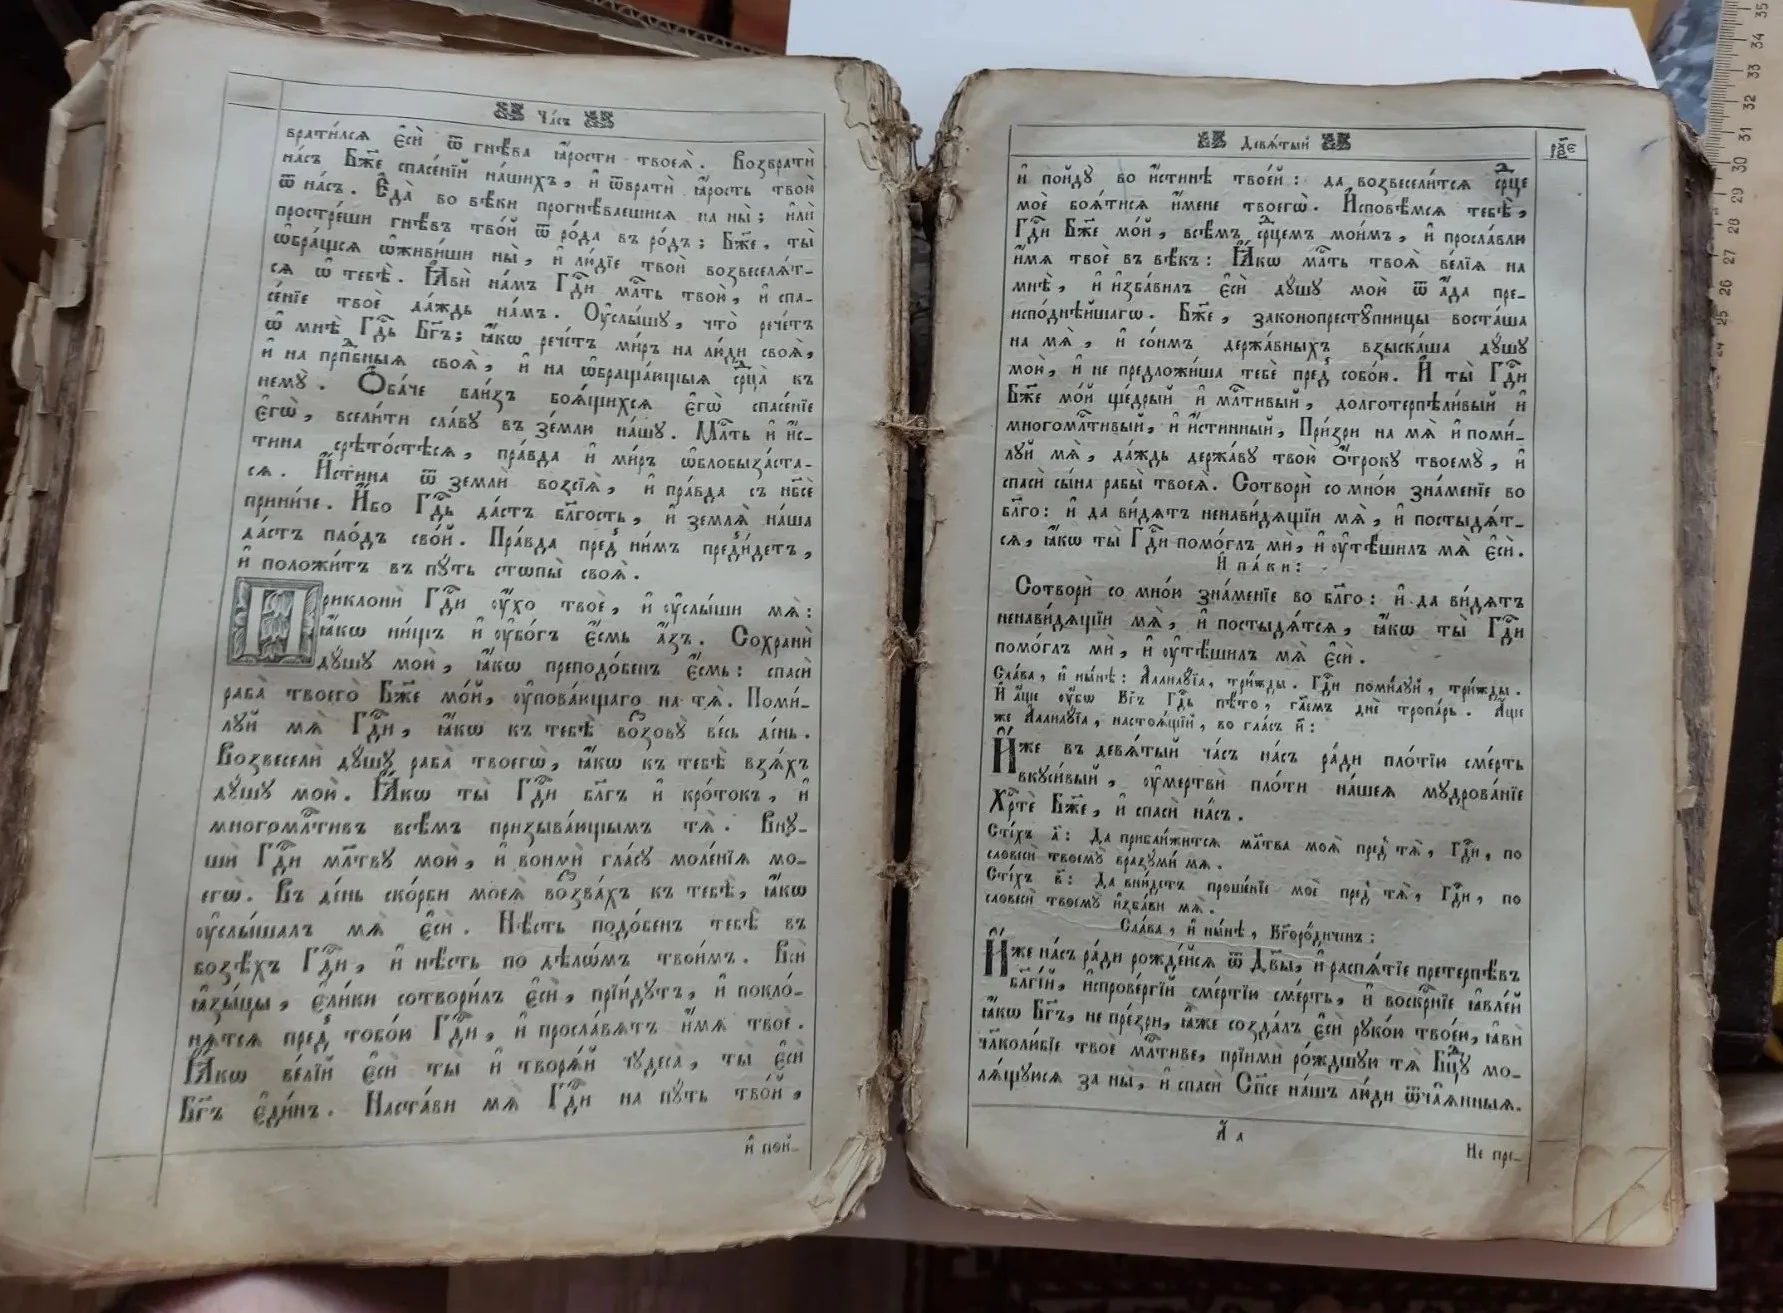 Ча́съ
врати́лсѧ є҆сѝ ѿ гнѣ́ва ꙗ҆́рости твоеѧ̀. Возвратѝ
на́съ Бж҃е спасе́нїй на́шихъ, и҆ ѿвратѝ ꙗ҆́рость твою̀
ѿ на́съ. Е҆да̀ во вѣ́ки прогнѣ́ваешисѧ на ны̀; и҆лѝ
простре́ши гнѣ́въ тво́й ѿ ро́да въ ро́дъ; Бж҃е, ты̀
ѡ҆бра́щсѧ ѡ҆живи́ши ны̀, и҆ лю́дїе твоѝ возвеселѧ́т-
сѧ ѡ҆ тебѣ̀. Ꙗ҆вѝ на́мъ Гдⷭ҇и млⷭ҇ть твою̀, и҆ спа-
се́нїе твоѐ да́ждь на́мъ. Оу҆слы́шу, что̀ рече́тъ
ѡ҆ мнѣ̀ Гдⷭ҇ь Бг҃ъ; ꙗ҆́кѡ рече́тъ ми́ръ на лю́ди своѧ̀,
и҆ на прпⷣбныѧ своѧ̀, и҆ на ѡ҆браща́ющыѧ срⷣца̀ къ
немꙋ̀. Ѻ҆ба́че бли́зъ боѧ́щихсѧ є҆гѡ̀ спасе́нїе
є҆гѡ̀, всели́ти сла́вꙋ въ зе́млю на́шꙋ. Млⷭ҇ть и҆ и҆́с-
тина срѣ́тостѣсѧ, пра́вда и҆ ми́ръ ѡ҆блобыза́ста-
сѧ. И҆́стина ѿ землѝ возсїѧ̀, и҆ пра́вда съ нб҃сѐ
прини́че. И҆́бо Гдⷭ҇ь да́стъ бл҃гость, и҆ землѧ̀ на́ша
да́стъ пло́дъ сво́й. Пра́вда пред̾ ни́мъ пред̾и́детъ,
и҆ положи́тъ въ пꙋ́ть стѡпы̀ своѧ̀.
Приклонѝ Гдⷭ҇и оу҆́хо твоѐ, и҆ оу҆слы́ши мѧ̀:
ꙗ҆́кѡ ни́щъ и҆ оу҆бо́гъ є҆́смь а҆́зъ. Сохранѝ
дꙋ́шꙋ мою̀, ꙗ҆́кѡ преподо́бенъ є҆́смь: спасѝ
раба̀ твоего̀ Бж҃е мо́й, оу҆пова́ющаго на тѧ̀. Поми́-
лꙋй мѧ̀ Гдⷭ҇и, ꙗ҆́кѡ къ тебѣ̀ возовꙋ̀ ве́сь де́нь.
Возвеселѝ дꙋ́шꙋ раба̀ твоегѡ̀, ꙗ҆́кѡ къ тебѣ̀ взѧ́хъ
дꙋ́шꙋ мою̀. Ꙗ҆́кѡ ты̀ Гдⷭ҇и бл҃гъ и҆ кро́токъ, и҆
многомлⷭ҇тивъ всѣ́мъ призыва́ющымъ тѧ̀. Внꙋ-
шѝ Гдⷭ҇и мл҃твꙋ мою̀, и҆ вонмѝ гла́сꙋ моле́нїѧ мо-
егѡ̀. Въ де́нь ско́рби моеѧ̀ воззва́хъ къ тебѣ̀, ꙗ҆́кѡ
оу҆слы́шалъ мѧ̀ є҆сѝ. Нѣ́сть подо́бенъ тебѣ̀ въ
бозѣ́хъ Гдⷭ҇и, и҆ нѣ́сть по дѣлѡ́мъ твои́мъ. Всѝ
ꙗ҆зы́цы, є҆ли́ки сотвори́лъ є҆сѝ, прїи́дꙋтъ, и҆ покло́-
нѧтсѧ пред̾ тобо́ю Гдⷭ҇и, и҆ просла́вѧтъ и҆́мѧ твоѐ.
Ꙗ҆́кѡ ве́лїй є҆сѝ ты̀ и҆ творѧ́й чꙋдеса̀, ты̀ є҆сѝ
Бг҃ъ є҆ди́нъ. Наста́ви мѧ̀ Гдⷭ҇и на пꙋ́ть тво́й,
и҆ пой-
Девѧ́тый
рѯ҃є
и҆ пойдꙋ̀ во и҆́стинѣ твое́й: да возвесели́тсѧ срⷣце
моѐ боѧ́тисѧ и҆́мене твоегѡ̀. И҆сповѣ́мсѧ тебѣ̀,
Гдⷭ҇и Бж҃е мо́й, всѣ́мъ срⷣцемъ мои́мъ, и҆ просла́влю
и҆́мѧ твоѐ въ вѣ́къ: Ꙗ҆́кѡ млⷭ҇ть твоѧ̀ ве́лїѧ на
мнѣ̀, и҆ и҆зба́вилъ є҆сѝ дꙋ́шꙋ мою̀ ѿ а҆́да пре-
испо́днѣйшагѡ. Бж҃е, законопрестꙋ́пницы воста́ша
на мѧ̀, и҆ со́нмъ держа́вныхъ взыска́ша дꙋ́шꙋ
мою̀, и҆ не предложи́ша тебѐ пред̾ собо́ю. И҆ ты̀ Гдⷭ҇и
Бж҃е мо́й ще́дрый и҆ млⷭ҇тивый, долготерпѣли́вый и҆
многомлⷭ҇тивый, и҆ и҆́стинный, При́зри на мѧ̀ и҆ поми́-
лꙋй мѧ̀, да́ждь держа́вꙋ твою̀ ѻ҆́трокꙋ твоемꙋ̀, и҆
спасѝ сы́на рабы̀ твоеѧ̀. Сотворѝ со мно́ю зна́менїе во
бл҃го: и҆ да ви́дѧтъ ненави́дѧщїи мѧ̀, и҆ постыдѧ́т-
сѧ, ꙗ҆́кѡ ты̀ Гдⷭ҇и помо́глъ мѝ, и҆ оу҆тѣ́шилъ мѧ̀ є҆сѝ.
И҆ па́ки:
Сотворѝ со мно́ю зна́менїе во бл҃го: и҆ да ви́дѧтъ
ненави́дѧщїи мѧ̀, и҆ постыдѧ́тсѧ, ꙗ҆́кѡ ты̀ Гдⷭ҇и
помо́глъ мѝ, и҆ оу҆тѣ́шилъ мѧ̀ є҆сѝ.
Сла́ва, и҆ ны́нѣ: А҆ллилꙋ́їа, три́жды. Гдⷭ҇и поми́лꙋй, три́жды.
И҆ а҆́ще оу҆́бѡ Бг҃ъ Гдⷭ҇ь пѣ́то, гл҃емъ днѐ тропа́рь. А҆́ще
же А҆ллилꙋ́їа, настоѧ́щїй, во гла́съ и҃:
И҆́же въ девѧ́тый ча́съ на́съ ра́ди пло́тїю сме́рть
вкꙋси́вый, оу҆мертвѝ пло́ти на́шеѧ мꙋдрова́нїе
Хрⷭ҇тѐ Бж҃е, и҆ спасѝ на́съ.
Сті́хъ а҃: Да прибли́житсѧ мл҃тва моѧ̀ пред̾ тѧ̀, Гдⷭ҇и, по
словесѝ твоемꙋ̀ вразꙋми́ мѧ.
Сті́хъ в҃: Да вни́детъ проше́нїе моѐ пред̾ тѧ̀, Гдⷭ҇и, по
словесѝ твоемꙋ̀ и҆зба́ви мѧ̀.
Сла́ва, и҆ ны́нѣ, Бг҃оро́диченъ:
И҆́же на́съ ра́ди рожде́йсѧ ѿ Дв҃ы, и҆ распѧ́тїе претерпѣ́въ
бл҃гі́й, и҆спрове́ргїй сме́ртїю сме́рть, и҆ воскрⷭ҇нїе ꙗ҆вле́й
ꙗ҆́кѡ Бг҃ъ, не пре́зри, ꙗ҆̀же созда́лъ є҆сѝ рꙋко́ю твое́ю, ꙗ҆вѝ
чл҃колю́бїе твоѐ млⷭ҇тиве, прїимѝ ро́ждшꙋю тѧ̀ Бцⷣꙋ мо-
лѧ́щꙋюсѧ за ны̀, и҆ спасѝ Сп҃се на́шъ лю́ди ѿча́ѧнныѧ.
А҆ а
Не пре-
35
34
33
32
31
30
29
28
27
26
25
24